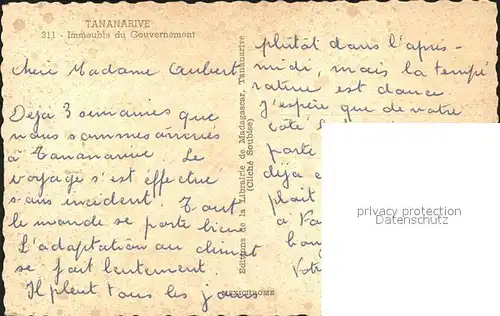 TANANARIVE
311 - Immeuble du Gouvernement
Chère Madame Aubert
Déjà 3 semaines que
nous sommes arrivés
à Tananarive Le
voyage s'est éffectué
sans incident. Tout
le monde se porte bien
L'adaptation au climat
se fait lentement.
Il pleut tous les jours
Editions de la Librairie de Madagascar, Tananarive
(Cliché Soubise)
MEXICHROME
plûtôt dans l'après-
midi, mais la tempé
rature est douce.
J'espère que de votre
côté
porte
déjà
plait
à
Votr
privacy protection
Datenschutz